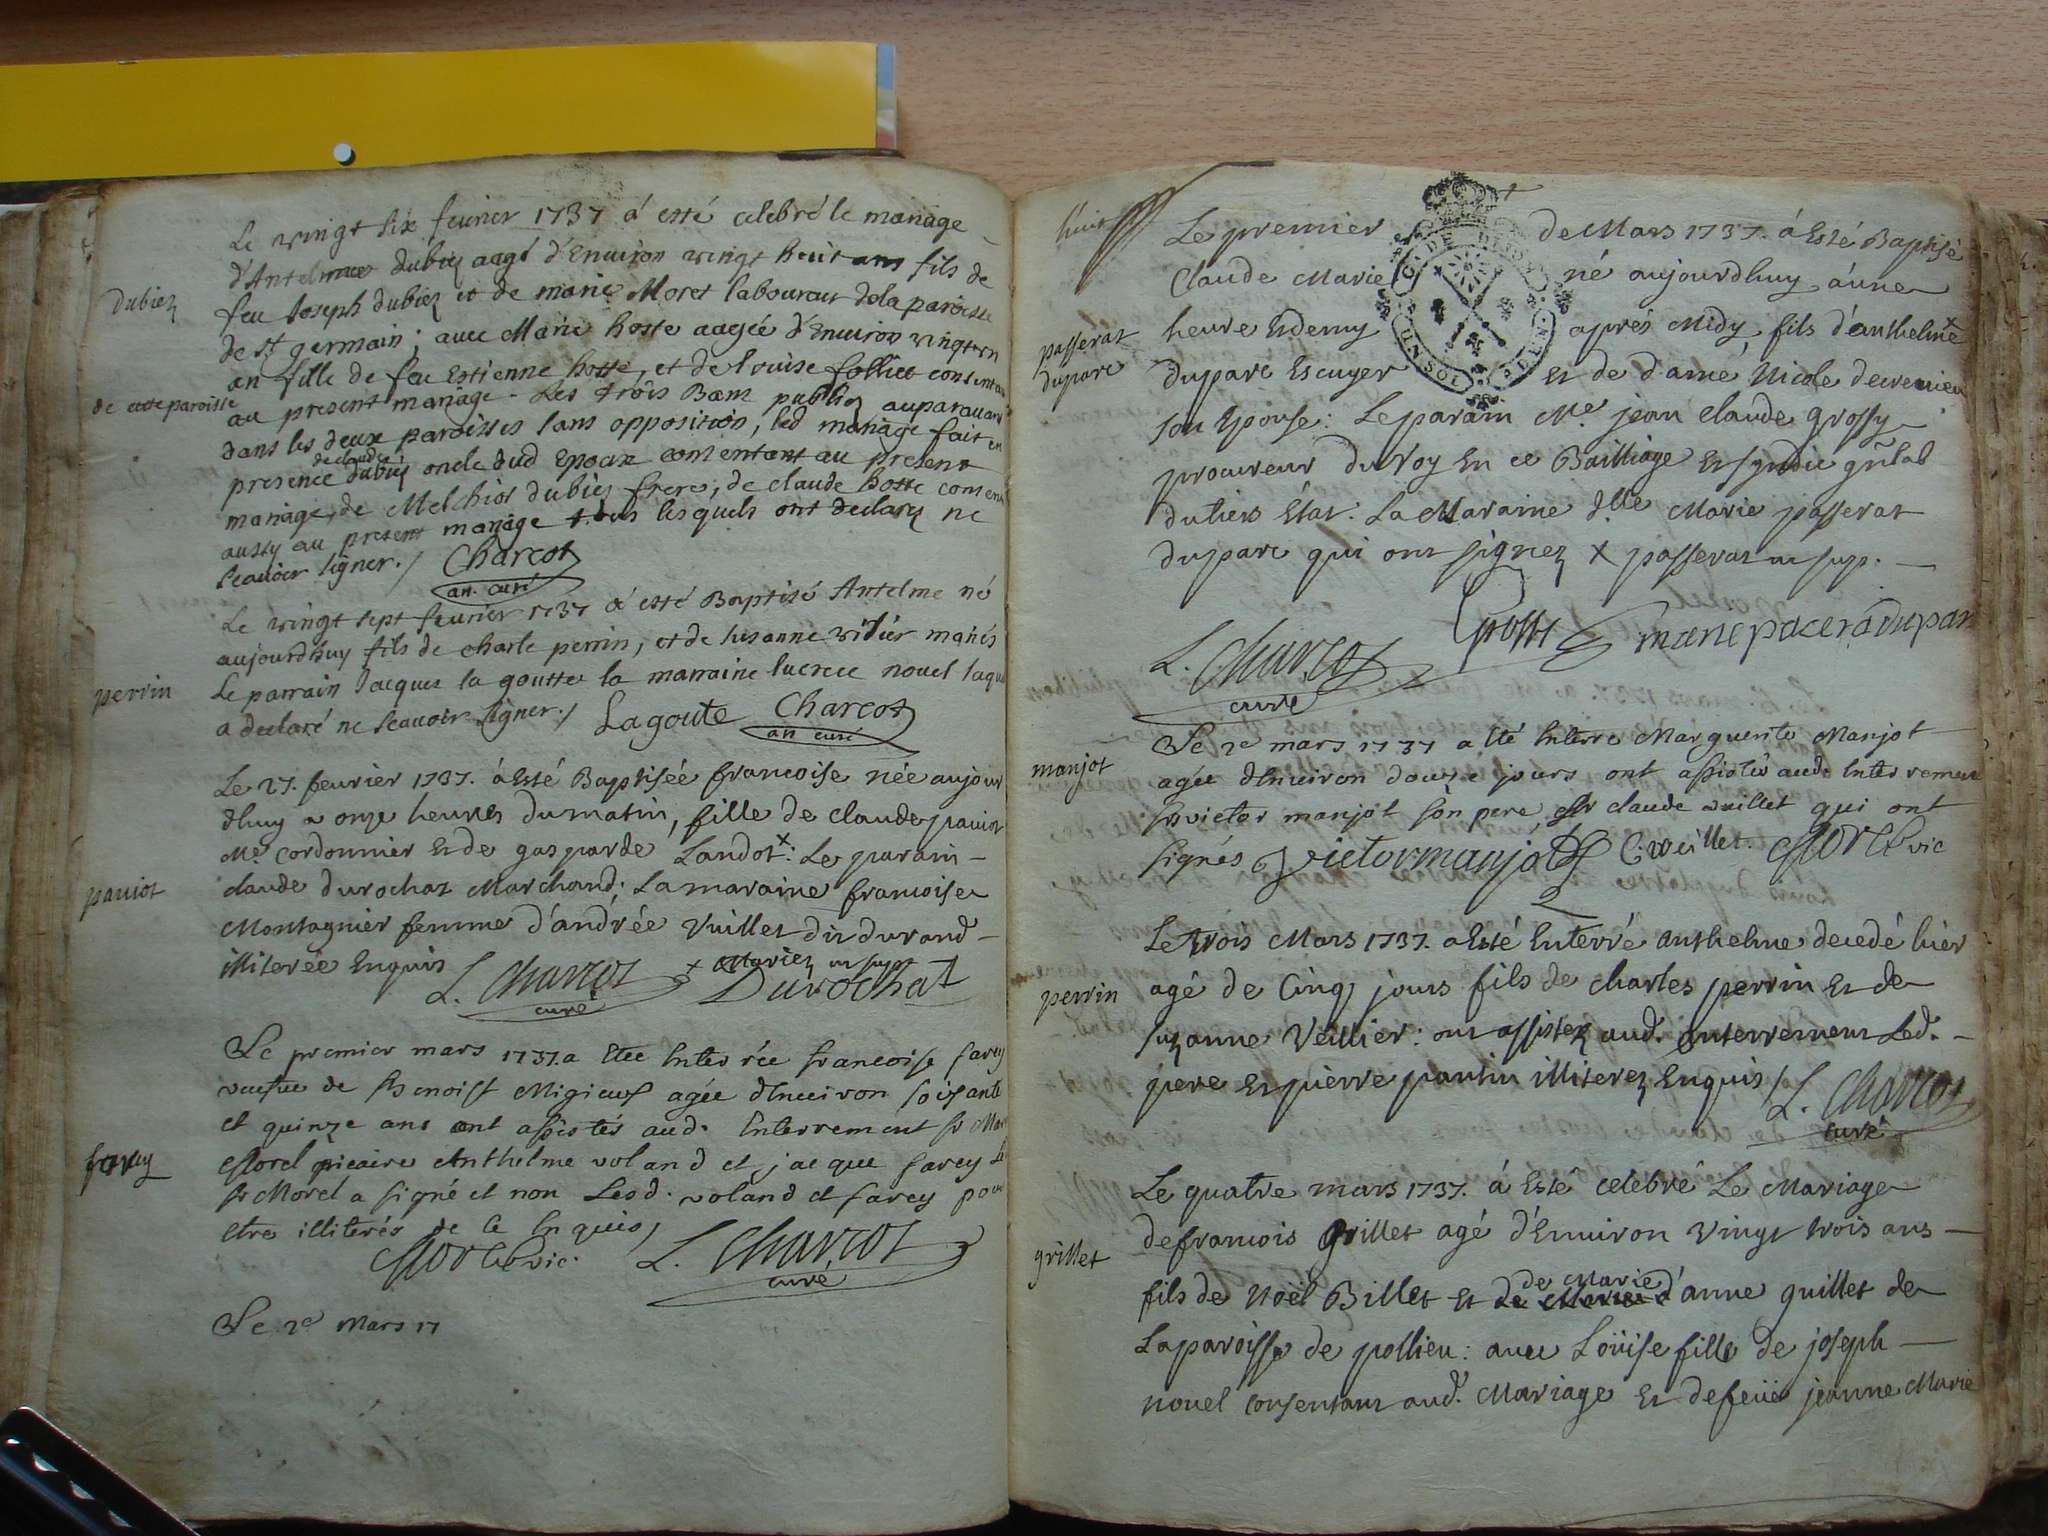 Le vingt six fevrier 1737 á esté celebré le mariage
d'Antelme dubiez aagé d'Environ vingt huit ans fils de
dubiez
feu Joseph dubiez et de marie Moret laboureur dela paroisse
de st germain; avec Marie hoste aagée d'Environ vingt un
an fille de feu Estienne hoste, et de louise folliet consentant
de cette paroisse
au present mariage. Les trois Bans publiez auparavant
dans les deux paroisses sans opposition, led mariage fait en
de claude
presence dubiez oncle dud Epoux consentant au present
mariage, de Melchior dubiez frere, de claude hoste consent
aussy au present mariage tous lesquels ont declaré ne
scavoir signer./ Charcot
an. curé
Le vingt sept fevrier 1737 á esté Baptisé Antelme né
aujourdhuy fils de charle perrin, et de susanne mariés
perrin
Le parrain Jacques la goutte la marraine lucrece nouel laqu
a declaré ne scavoir signer./ Lagoute Charcot
an curé
Le 27. fevrier 1737. á Esté Baptisée francoise née aujour
dhuy a onze heures du matin, fille de claude paviot
Me. cordonnier Et de gasparde Landot x: Le parain
paviot
claude durochat Marchand; La maraine francoise
Montagnier femme d'andrée Vuillet dit durand
illiterée Enquis x Mariez ut supr
L. Charcot Durochat
curé
Le premier mars 1737. a Etée Enterrée francoise farcy
vaefue de sr Benoist Migieuf agée dEnviron soisante
et quinze ans ont assistés aud. Enterrement sr Marc
farcy
Morel vicaire Anthelme voland et jacque farcy Le
sr Morel a signé et non Lesd. voland et farcy pour
etre illiterés de ce Enquis,
Morel vic. L. Charcot
curé
Le 2e Mars 17
huit
Le premier de Mars 1737. á Esté Baptisé
Claude Marie né aujourdhuy á une
passerat
duparc
heure Et demy aprés Midy fils d'anthelme x
duparc Escuyer Et de dame Nicole decremieu
son Epouse: Le parain Me. jean claude grossy
procureur du Roy En ce Bailliage Et syndic gñlal
du tiers Etat. La Maraine dlle Marie passerat
duparc qui ont signez x passerat ut supr.
L. Charcot Grossy marie pacera dupar
curé
Le 2e mars 1737 a eté Enterre Marguerite Manjot
manjot
agée dEnviron douze jours ont assistés aude Enterrement
sr victor manjot son pere, et sr claude vuillet qui ont
signés victor manjot C. Vuillet Morel vic
Le trois Mars 1737. a Esté Enterré anthelme decedé hier
perrin
agé de Cinq jours fils de charles perrin Et de
suzanne Veullier: ont assistez aud. enterrement Led.
pere Et pierre pantin illiterez Enquis / L. Charcot
curé
Le quatre mars 1737. á Esté celebré Le Mariage
de francois grillet agé d'Environ Vingt trois ans
grillet
de Marie
fils de Noël Billet Et de Marie d'anne guillet de
La paroisse de pollieu: avec Loüise fille de joseph
nouel consentant aud. Mariage Et de feüe jeanne Marie